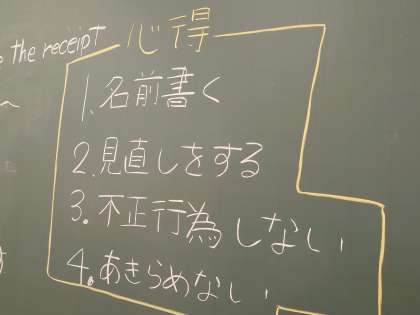 the receipt
心得
1. 名前書く
2. 見直しをする
3. 不正行為しない
4. あきらめない